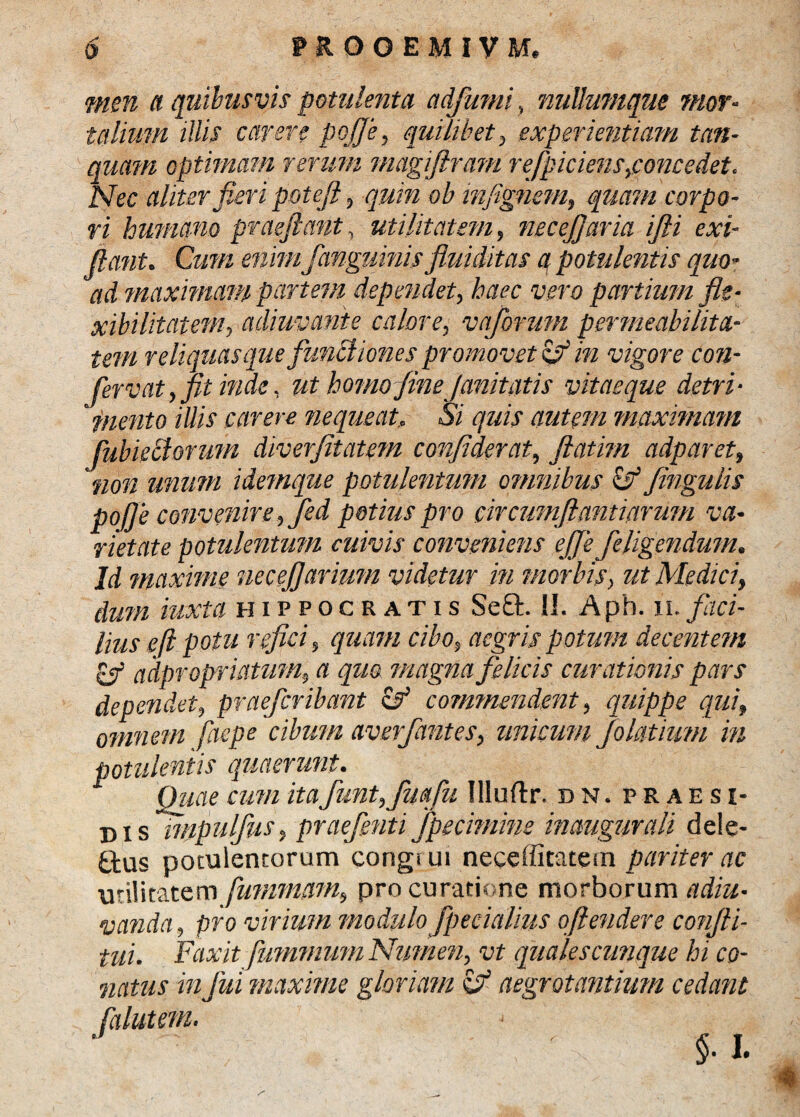 6 PROOEMIVM.
men a quibusvis potulenta adſumi, nullumque mor-
talium illis carere poſſe, quilibet, experientiam tan-
quam optimam rerum magiſtram reſpiciens, concedet.
Nec aliter fieri poteſt, quin ob inſignem, quam corpo-
ri humano praeſtant, utilitatem, neceſſaria iſti exi-
ſtant. Cum enim ſanguinis fluiditas a potulentis quo-
ad maximam partem dependet, haec vero partium fle-
xibilitatem, adiuvante calore, vaſorum permeabilita-
tem reliquasque functiones promovet & in vigore con-
ſervat, fit inde, ut homo ſine ſanitatis vitaeque detri-
mento illis carere nequeat. Si quis autem maximam
ſubiectorum diverſitatem conſiderat, ſtatim adparet,
non unum idemque potulentum omnibus & ſingulis
poſſe convenire, ſed potius pro circumſtantiarum va-
rietate potulentum cuivis conveniens eſſe ſeligendum.
Id maxime neceſſarium videtur in morbis, ut Medici,
dum iuxta HIPPOCRATIS Sect. II. Aph. 11. faci-
lius eſt potu refici, quam cibo, aegris potum decentem
& adpropriatum, a quo magna felicis curationis pars
dependet, praeſcribant & commendent, quippe qui,
omnem ſaepe cibum averſantes, unicum ſolatium in
potulentis quaerunt.
Quae cum ita ſunt, ſuaſu Illuſtr. DN. PRAESI-
DIS impulſus, praeſenti ſpecimine inaugurali dele-
ctus potulentorum congrui neceſſitatem pariter ac
utilitatem ſummam, pro curatione morborum adiu-
vanda, pro virium modulo ſpecialius oſtendere conſti-
tui. Faxit ſummum Numen, vt qualescunque hi co-
natus in ſui maxime gloriam & aegrotantium cedant
ſalutem.
§. I.